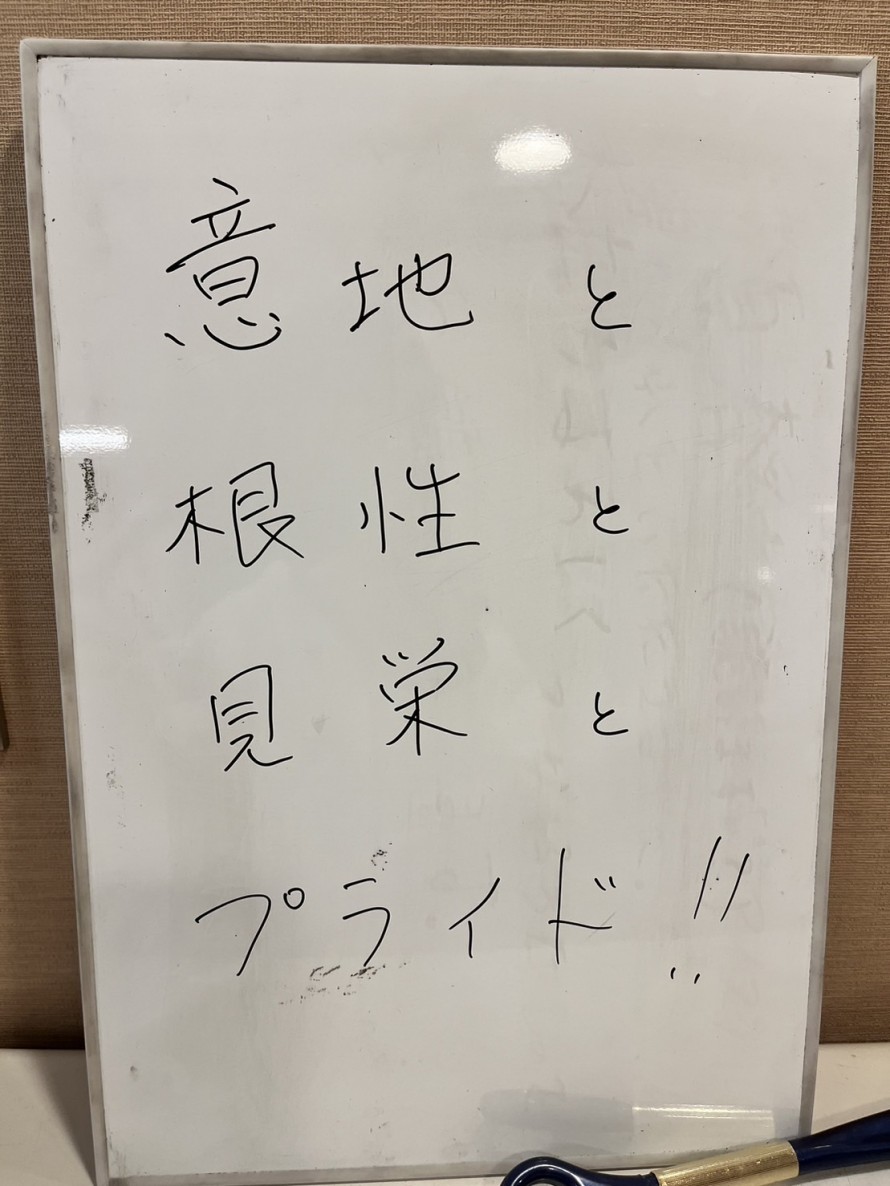 意地と
根性と
見栄と
プライド!!